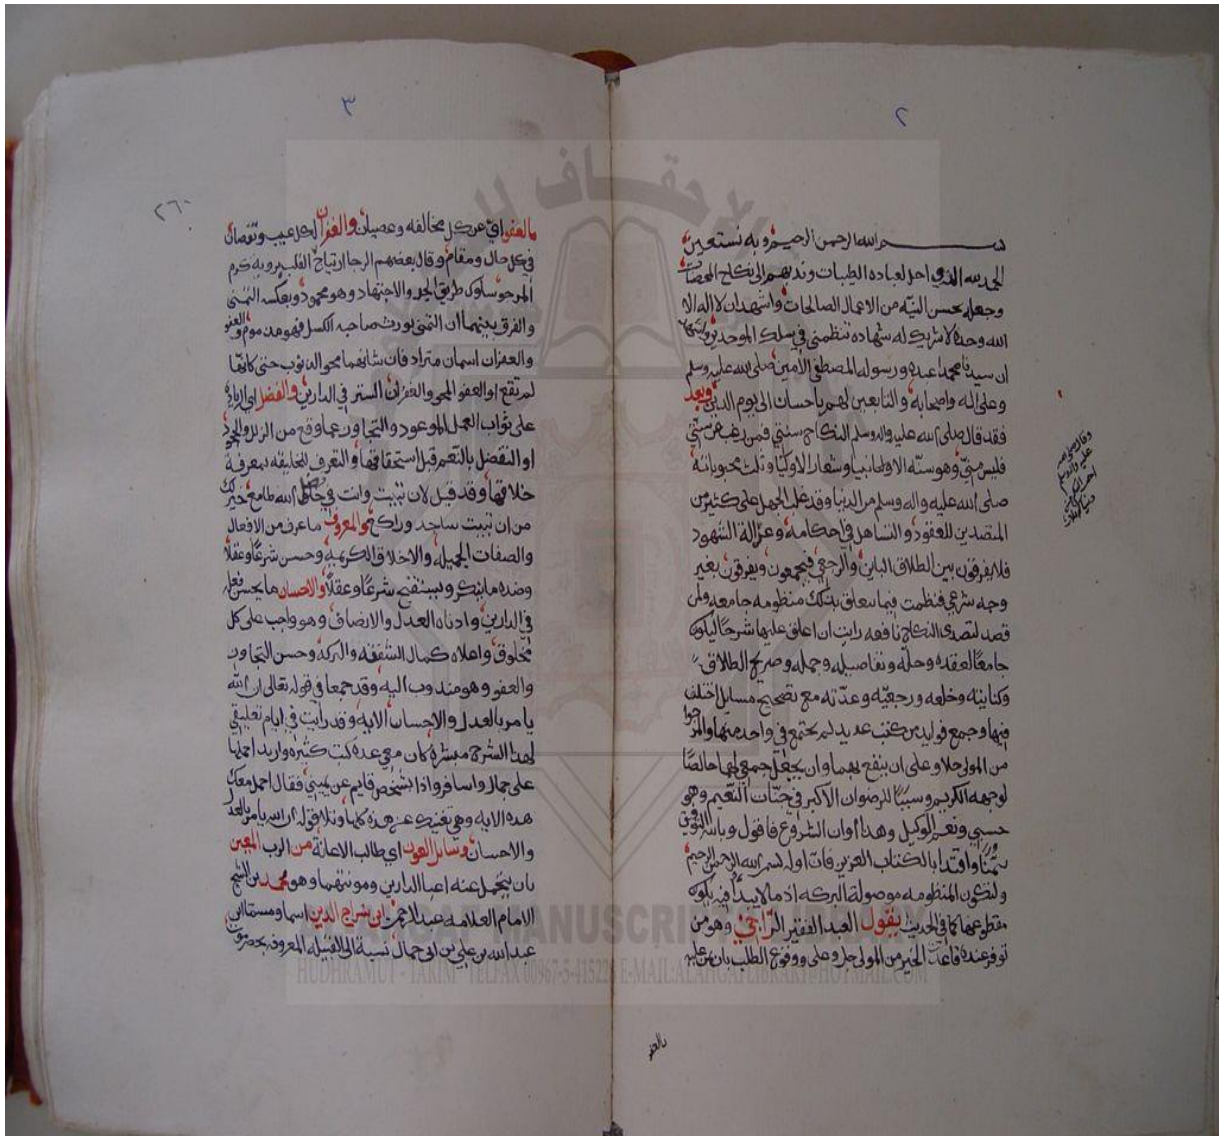 ٢
بسم الله الرحمن الرحيم وبه نستعين
الحمد لله الذي احل لعباده الطيبات وندبهم الى نكاح المحصنات
وجعله بحسن النية من الاعمال الصالحات واشهد ان لا اله الا
الله وحده لا شريك له شهاده تنظمني في سلك الموحدين واشهد
ان سيدنا محمدا عبده ورسوله المصطفى الأمين صلى الله عليه وسلم
وعلى اله واصحابه والتابعين لهم باحسان الى يوم الدين وبعد
فقد قال صلى الله عليه واله وسلم النكاح سنتي فمن رغب عن سنتي
فليس مني وهو سنه الانبيا وشعار الاوليا وثلث محبوباته
صلى الله عليه واله وسلم من الدنيا وقد غلب الجهل على كثير من
المتصدين للعقود والتساهل في احكامه وعدالة الشهود
فلا يفرقون بين الطلاق الباين والرجعي فيجمعون ويفرقون بغير
وجه شرعي فنظمت فيما يتعلق بذلك منظومه جامعه ولمن
قصد لتصدى النكاح نافعه رايت ان اعلق عليها شرحا ليكون
جامعا لعقده وحله وتفاصيله وجمله وصريح الطلاق
وكنايته وخلعه ورجعيه وعدته مع تصحيح مسايل اختلف
فيها وجمع فوايد من كتب عديد لم يجتمع في واحد منها والمرجوا
من المولى جلا وعلى ان ينفع بهما وان يجعل جمعي لهما خالصا
لوجهه الكريم وسببا للرضوان الأكبر في جنات النعيم وهو
حسبي ونعم الوكيل وهذا أوان الشروع فاقول وبالله التوفيق
تيمنا واقتدا بالكتاب العزيز فان اوله بسم الله الرحمن الرحيم
ولتكون المنظومه موصولة البركه اذ ما لا يبدأ فيه يكون
مقطوعها كما في الحديث يقول العبد الفقير الراجي وهو من
توفر عنده قاعدت الخير من المولى جل وعلى ووقوع الطلب بان يمن عليه
بالعفو
وقال صلى الله
عليه واله وسلم
٣
٢٦٠
بالعفو اي عن كل مخالفه وعصيان والغفران لكل عيب ونقصان
في كل حال ومقام وقال بعضهم الرجا ارتياح القلب برويه كرم
المرجو سلوك طريق الجد والاجتهاد وهو محمود وبعكسه التمني
والفرق بينهما ان التمني يورث صاحبه الكسل فهو مذموم والعفو
والغفران اسمان مترادفان شانهما محو الذنوب حتى كانها
لم تقع او العفو المحو والغفران الستر في الدارين والفضل اي الزياده
على ثواب العمل الموعود والتجاوز عما وقع من الزلل والجود
او التفضل بالنعم قبل استحقاقها والتعرف للخليقه بمعرفة
خلاقها وقد قيل لان تبيت وانت في خلق الله طامع خير لك
من ان تبيت ساجد وراكع والمعروف ما عرف من الافعال
والصفات الجميله والاخلاق الكريمه وحسن شرعا وعقلا
وضده ما ينكر ويستقبح شرعا وعقلا والاحسان ما يحسن فعله
في الدارين وادناه العدل والانصاف وهو واجب على كل
مخلوق واعلاه كمال الشفقه والبركه وحسن التجاوز
والعفو وهو مندوب اليه وقد جمعا في قوله تعالى ان الله
يامر بالعدل والاحسان الايه وقد رايت في ايام تعليقي
لهذا الشرح مبشره كان معي عدة كتب كثيره واريد احملها
على جمال واسافر واذا بشخص قايم عن يميني فقال احمل معك
هذه الايه وهي تغنيك عن هذه كلها وتلا قوله ان الله يامر بالعدل
والاحسان وسايل العون اي طالب الاعانة من الرب المعين
بان يتحمل عنه اعبا الدارين ومونتهما وهو محمد بن الشيخ
الامام العلامه عبد الرحمن ابن سراج الدين اسما ومسما ابن
عبد الله بن علي بن ابي جمال نسبة الى القبيله المعروفه بحضرموت